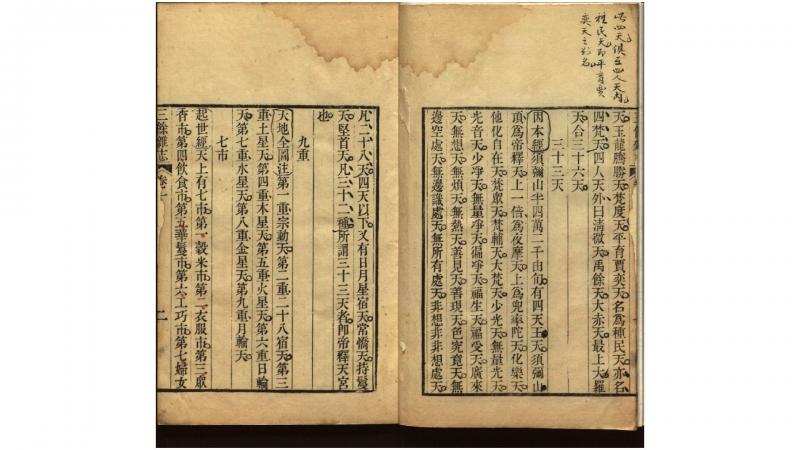 此四天俱在四人天内
種民天即平育賈
奕天之别名
天玉龍騰勝天梵度天平育賈奕天名爲種民天亦名
四梵天四人天外曰清微天禹餘天大赤天最上大羅
天合三十六天
三十三天
因本經須彌山半四萬二千由旬有四天王天須彌山
頂爲帝釋天上一倍爲夜摩天上爲兜率陀天化樂天
他化自在天梵衆天梵輔天大梵天少光天無量光天
光音天少淨天無量淨天徧淨天福生天福愛天廣果
天無想天無煩天無熱天善見天善現天色究竟天無
邊空處天無邊識處天無所有處天非想非非想處天
凡二十八天四天以下又有日月星宿天常憍天持鬘
天堅首天凡三十二種所謂三十三天者即帝釋天宮
也
九重
天地全圖注第一重宗動天第二重二十八宿天第三
重土星天第四重木星天第五重火星天第六重日輪
天第七重水星天第八重金星天第九重月輪天
七市
起世經天上有七市第一穀米市第二衣服市第三衆
香市第四飲食市第五華鬘市第六工巧市第七婦女
三餘雜志 卷一 二